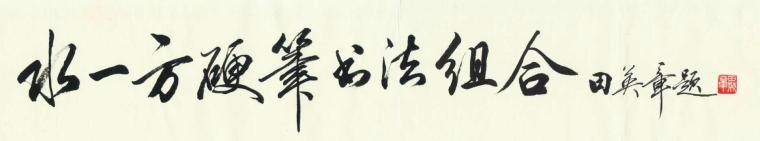 水一方硬筆书法组合 田英章题